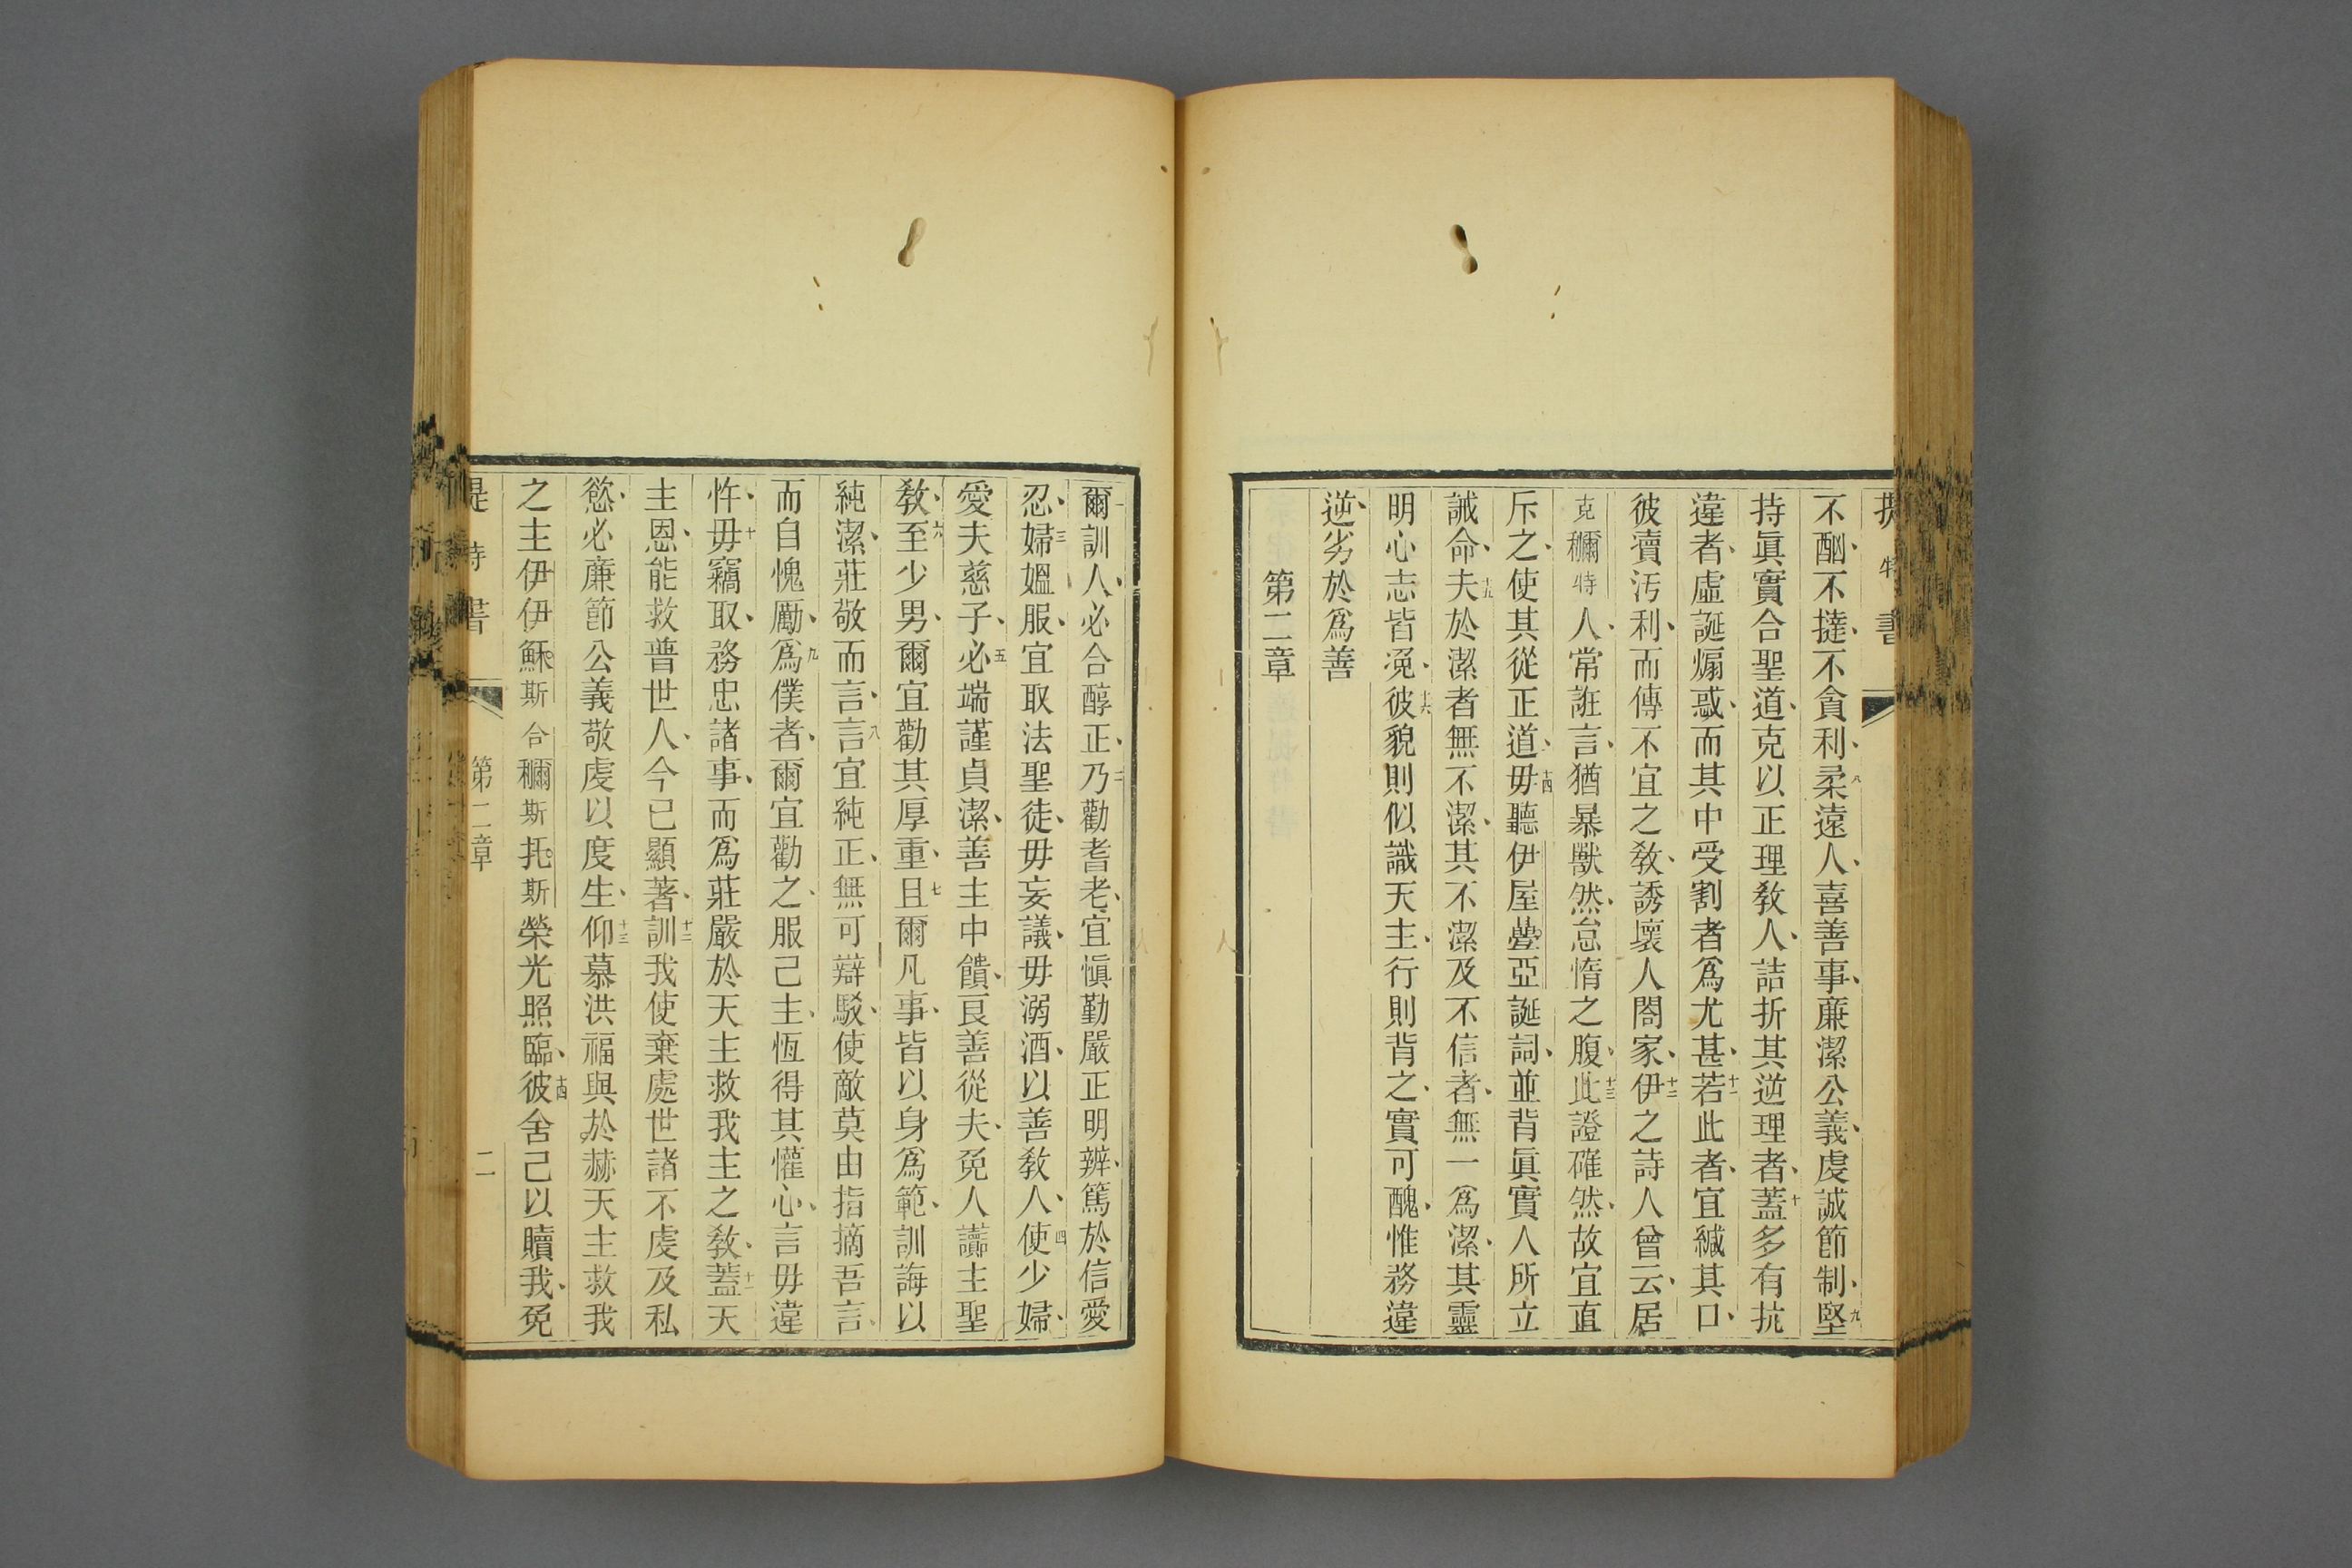 提特書
不酗、不撻、不貪利、八柔遠人、喜善事、廉潔公義、虔誠節制、九堅
持眞實合聖道、克以正理敎人、詰折其逆理者、十蓋多有抗
違者、虛誕煽惑、而其中受割者爲尤甚、十一若此者、宜緘其口、
彼賣汚利、而傳不宜之敎、誘壞人閤家、十二伊之詩人曾云、居
克穪特人、常誑言、猶暴獸然、怠惰之腹、十三此證確然、故宜直
斥之、使其從正道、十四毋聽伊屋疊亞誕詞、並背眞實人所立
誡命、十五夫於潔者無不潔、其不潔及不信者、無一爲潔、其靈
明心志皆浼、十六彼貌則似識天主、行則背之、實可醜、惟務違
逆、劣於爲善
第二章
一爾訓人、必合醇正、二乃勸耆老、宜愼勤嚴正明辨、篤於信愛
忍、三婦媼服、宜取法聖徒、毋妄議、毋溺酒、以善敎人、四使少婦、
愛夫慈子、五必端謹貞潔、善主中饋、良善從夫、免人讟主聖
敎、六至少男、爾宜勸其厚重、七且爾凡事、皆以身爲範、訓誨以
純潔、莊敬而言、八言宜純正、無可辯駁、使敵莫由指摘吾言、
而自愧勵、九爲僕者、爾宜勸之、服己主、恆得其懽心、言毋違
忤、十毋竊取、務忠諸事、而爲莊嚴於天主救我主之敎、十一蓋天
主恩、能救普世人、今已顯著、十二訓我使棄處世諸不虔及私
慾、必廉節公義敬虔以度生、十三仰慕洪福與於赫天主救我
之主伊伊穌斯合穪斯托斯榮光照臨、十四彼舍己以贖我、免
提特書
第二章
二